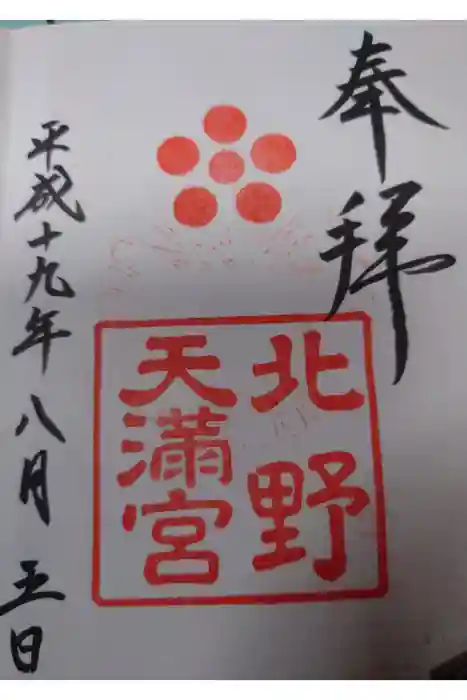 奉拝
北野
天満宮
平成十九年八月五日